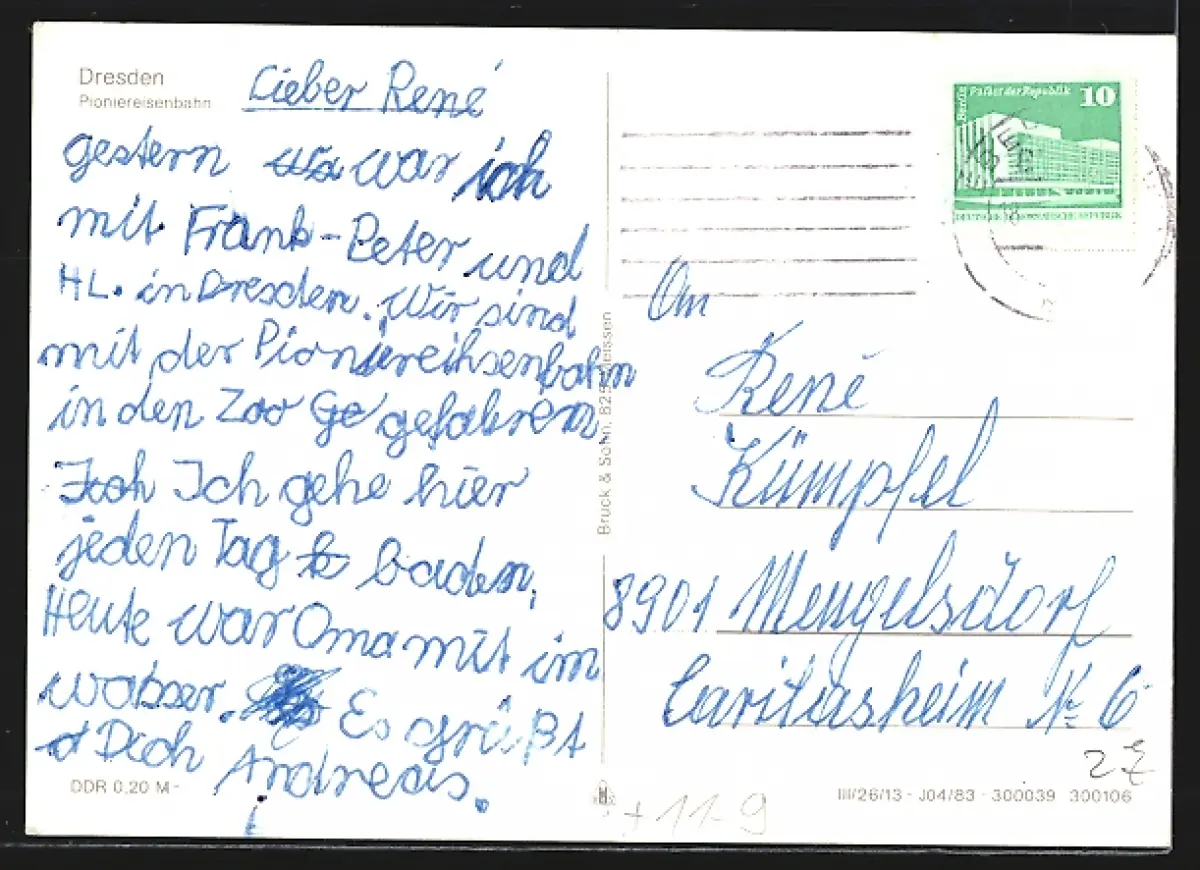 Dresden
Pioniereisenbahn
Lieber René
gestern war ich
mit Frank-Peter und
HL. in Dresden. Wir sind
mit der Pioniereihsenbahn
in den Zoo Ge gefahren
Ich gehe hier
jeden Tag b baden.
Heute war Oma mit im
wasser. Es grüßt
d Dich Andreas.
DDR 0,20 M
Bruck & Sohn, 825 Meissen
Berlin Palast der Republik 10
DEUTSCHE DEMOKRATISCHE REPUBLIK
An
René
Kümpfel
8901 Mengelsdorf
Caritasheim № 6
III/26/13 - J04/83 - 300039 300106
+ 11-9